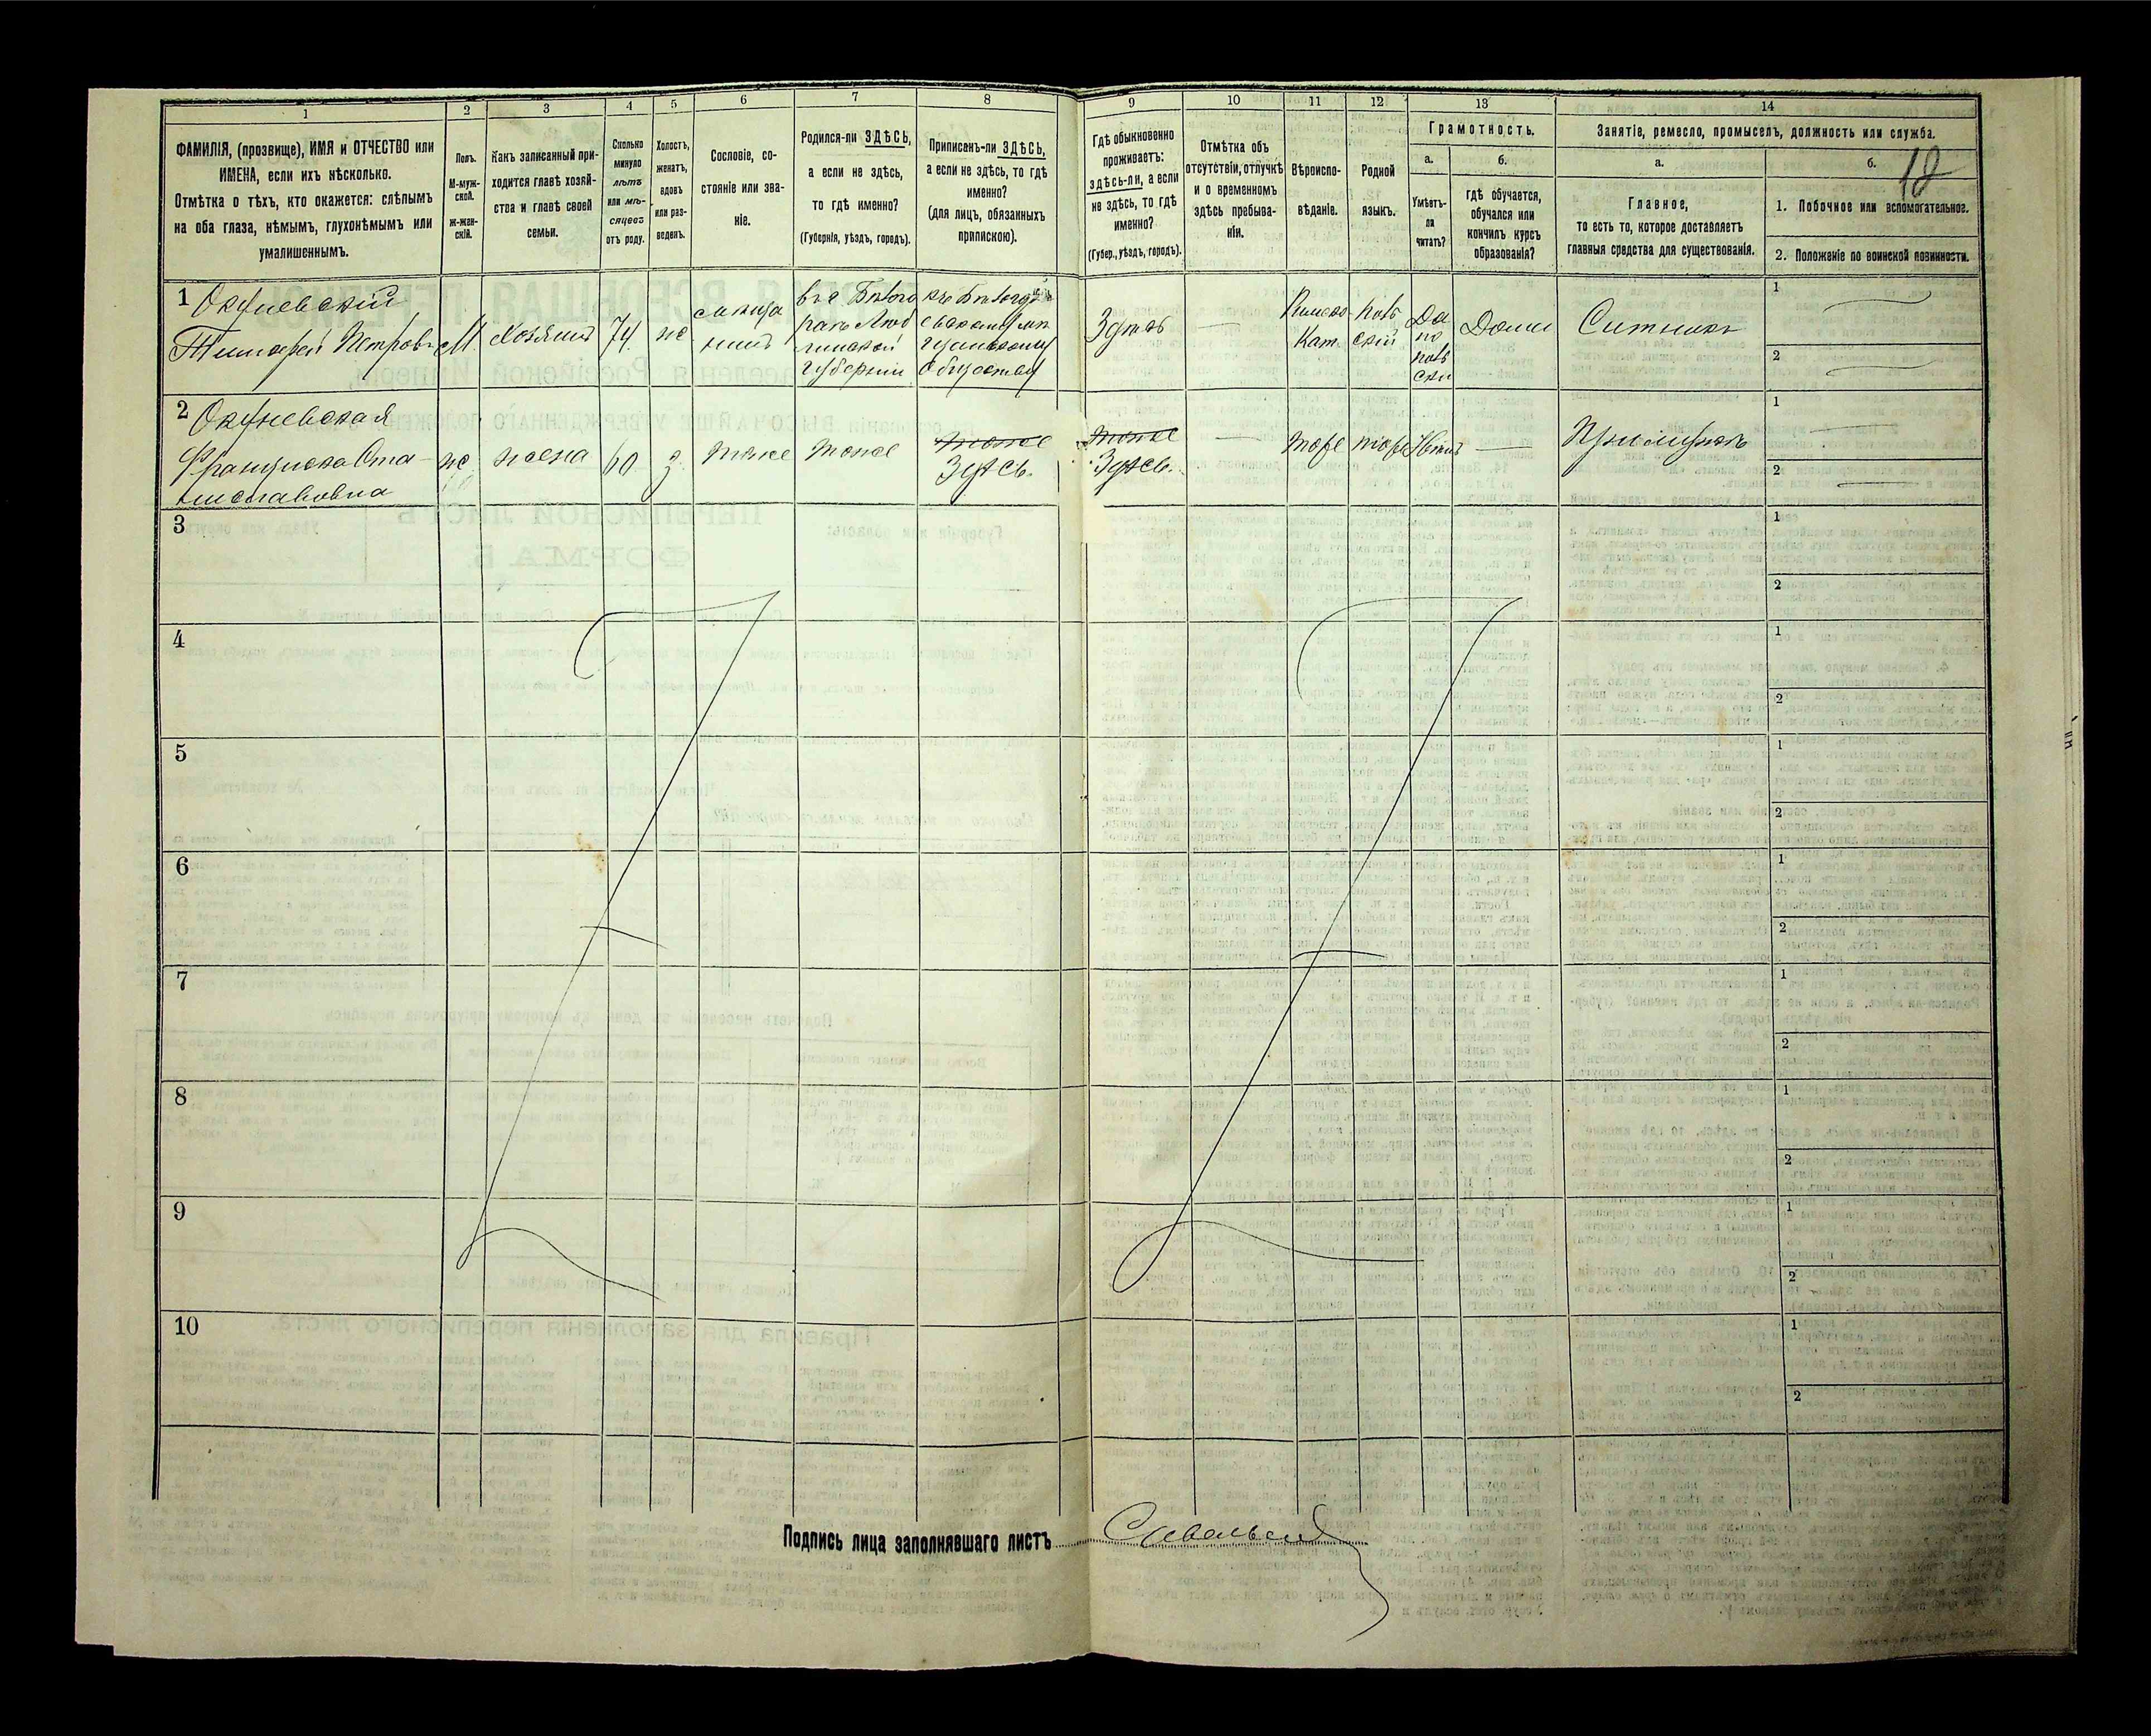 1
2
3
4
5
6
7
8
9
10
11
12
13
14
ФАМИЛІЯ, (прозвище), ИМЯ и ОТЧЕСТВО или
ИМЕНА, если ихъ нѣсколько.
Отмѣтка о тѣхъ, кто окажется: слѣпымъ
на оба глаза, нѣмымъ, глухонѣмымъ или
умалишеннымъ.
Полъ.
М-муж-
ской.
ж-жен-
скій.
Какъ записанный при-
ходится главѣ хозяй-
ства и главѣ своей
семьи.
Сколько
минуло
лѣтъ
или мѣ-
сяцевъ
отъ роду.
Холостъ,
женатъ,
вдовъ
или раз-
веденъ.
Сословіе, со-
стояніе или зва-
ніе.
Родился-ли ЗДѢСЬ,
а если не здѣсь,
то гдѣ именно?
(Губернія, уѣздъ, городъ).
Приписанъ-ли ЗДѢСЬ,
а если не здѣсь, то гдѣ
именно?
(для лицъ, обязанныхъ
припискою).
Гдѣ обыкновенно
проживаетъ:
здѣсь-ли, а если
не здѣсь, то гдѣ
именно?
(Губер., уѣздъ, городъ).
Отмѣтка объ
отсутствіи, отлучкѣ
и о временномъ
здѣсь пребыва-
ніи.
Вѣроиспо-
вѣданіе.
Родной
языкъ.
Грамотность.
а.
Умѣетъ-
ли
читать?
б.
Гдѣ обучается,
обучался или
кончилъ курсъ
образованія?
Занятіе, ремесло, промыселъ, должность или служба.
а.
Главное,
то есть то, которое доставляетъ
главныя средства для существованія.
б.
18
1. Побочное или вспомогательное.
2. Положеніе по воинской повинности.
1
Окуневскій
Тимофей Петров
М
Хозяинъ
74
же
Въ Бѣлого
раѣ Люб
линской
Губерніи
Обществу
Здѣсь
Римско
Кат.
Поль
скій
Да
по
поль
ски
Дома
Ситникъ
1
2
2
Окуневская
Франциска Ста-
ниславовна
же
жена
60
з
тоже
тоже
тоже
Здѣсь.
тоже
Здѣсь.
тоже
тоже
Нѣтъ
При мужѣ
1
2
3
1
2
4
1
2
5
1
2
6
1
2
7
1
2
8
1
2
9
1
2
10
1
2
Подпись лица заполнявшаго листъ